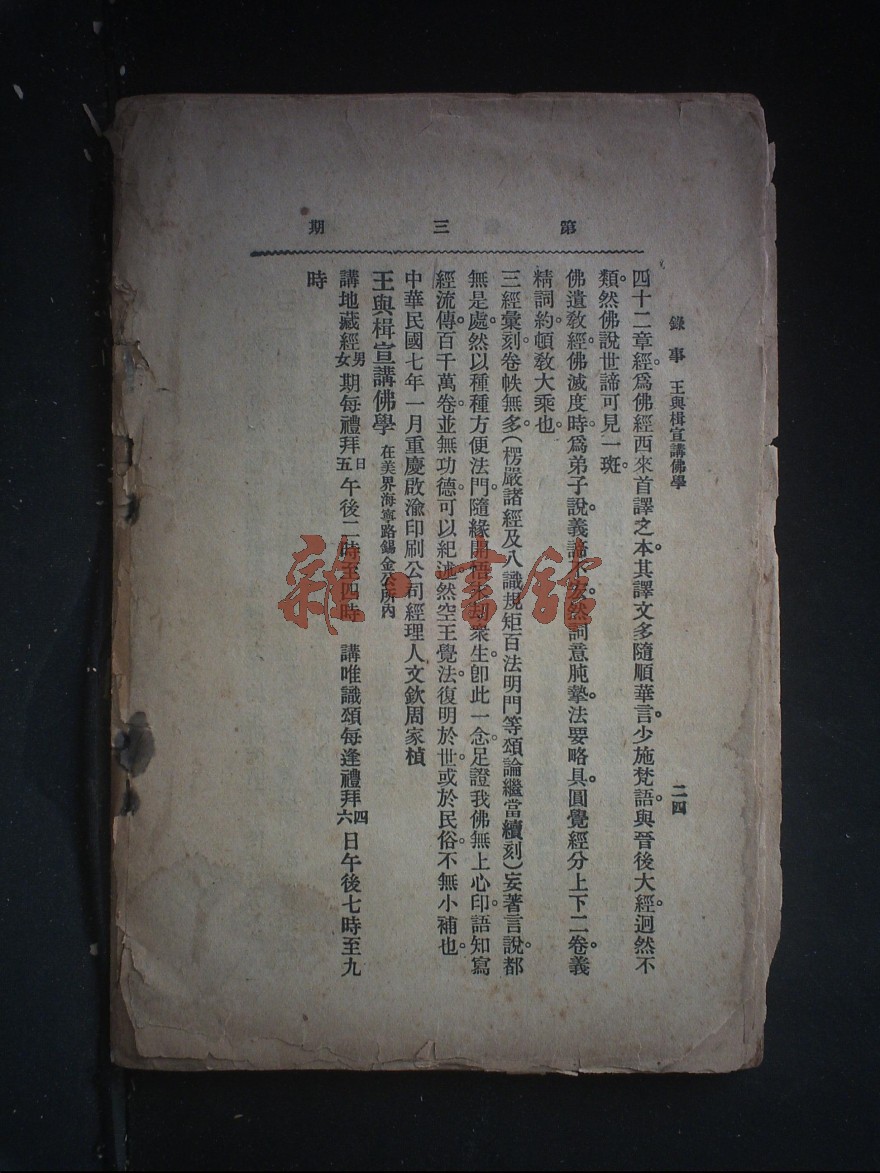 第三期
錄事 王與楫宣講佛學 二四
四十二章經。爲佛經西來首譯之本。其譯文多隨順華言。少施梵語。與晉後大經。迥然不
類。然佛說世諦可見一斑。
佛遺敎經。佛滅度時。爲弟子說。義諦不 然詞意肫摯。法要略具。圓覺經分上下二卷。義
精詞約。頓敎大乘也。
三經彙刻。卷帙無多。(楞嚴諸經及八識規矩百法明門等頌論繼當續刻)妄著言說。都
無是處。然以種種方便法門。隨緣開悟永劫衆生。卽此一念。足證我佛無上心印。語知寫
經流傳。百千萬卷。並無功德可以紀述。然空王覺法。復明於世。或於民俗。不無小補也。
中華民國七年一月重慶啟渝印刷公司經理人文欽周家楨
王與楫宣講佛學 在美界海寧路錫金公所內
講地藏經男女期每禮拜日五午後二時至四時 講唯識頌每逢禮拜四六日午後七時至九
時
雜·書館